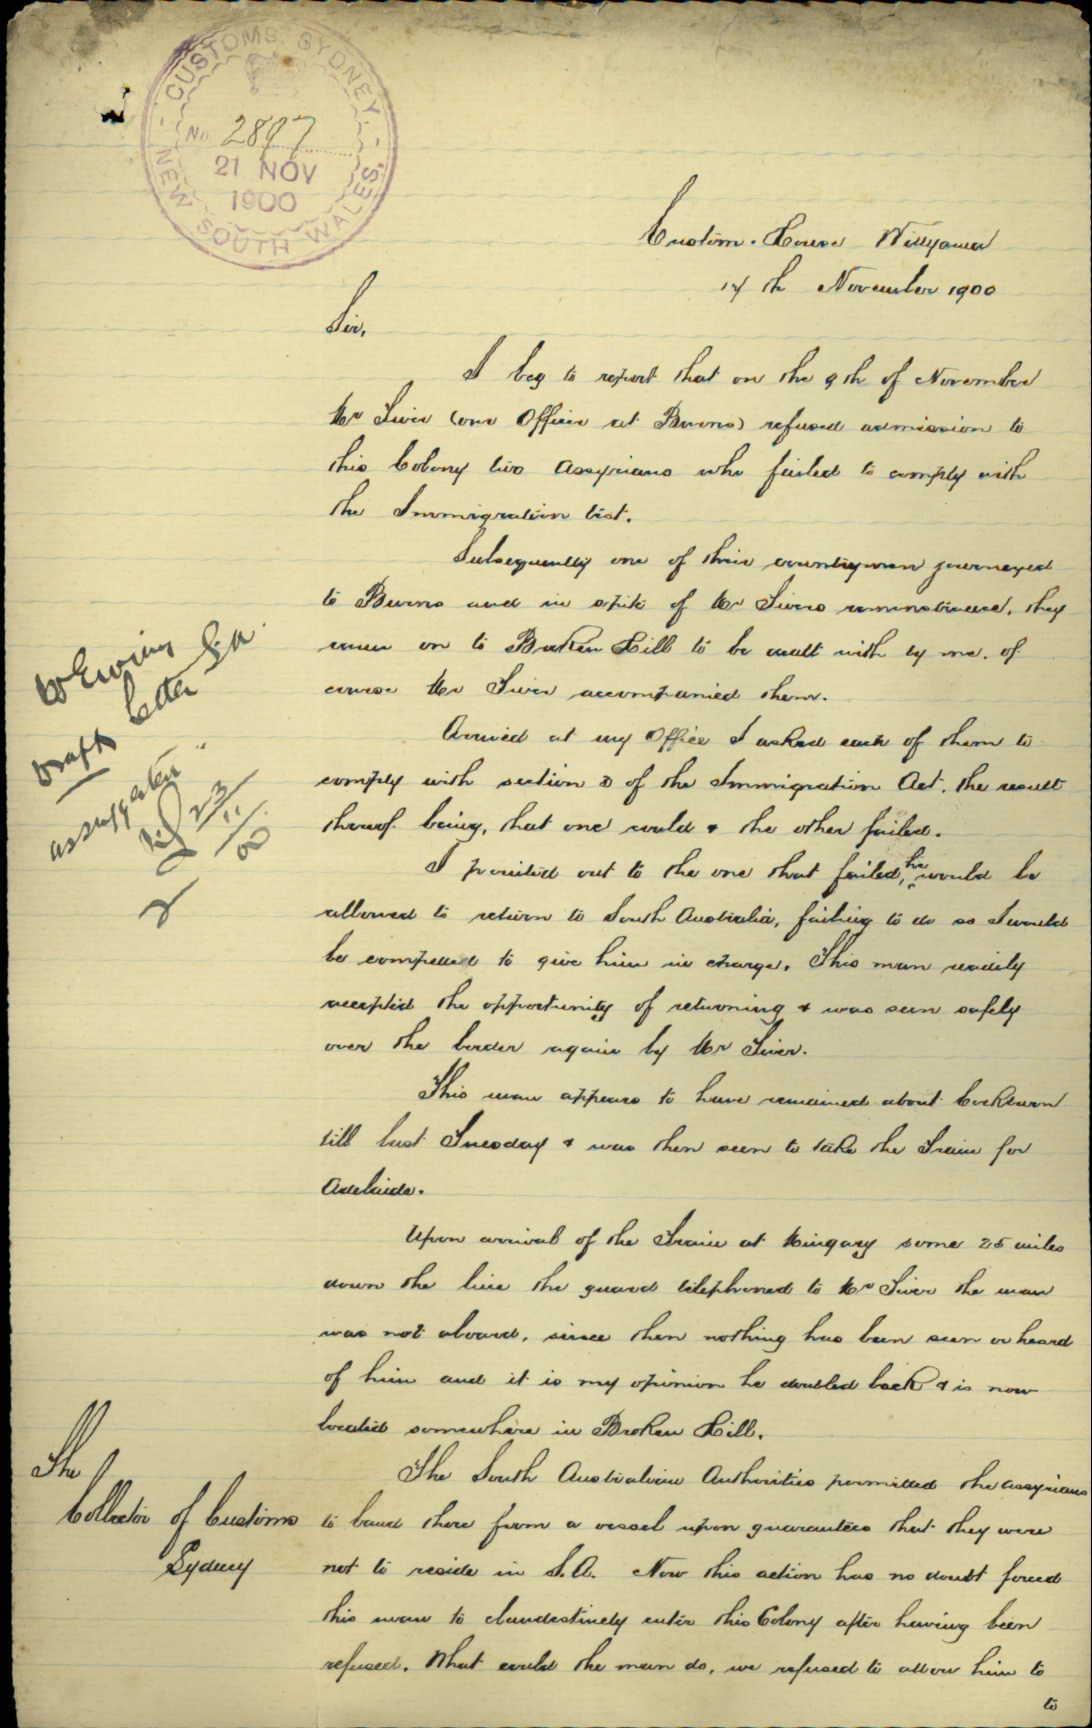 CUSTOMS, SYDNEY,
NEW SOUTH WALES,
No. 2897
21 NOV
1900
Custom-House Willyama
17th November 1900
Sir,
I beg to report that on the 9th of November
Mr Siver (our Officer at Burns) refused admission to
this Colony two Assyrians who failed to comply with
the Immigration test.
Subsequently one of their countrymen journeyed
to Burns and in spite of Mr Sivers remonstrance, they
came on to Broken Hill to be dealt with by me. of
course Mr Siver accompanied them.
Arrived at my Office I asked each of them to
comply with section 3 of the Immigration Act. the result
thereof being, that one could & the other failed.
I pointed out to the one that failed, he would be
allowed to return to South Australia, failing to do so I would
be compelled to give him in charge. This man readily
accepted the opportunity of returning & was seen safely
over the border again by Mr Siver.
This man appears to have remained about Cockburn
till last Tuesday & was then seen to take the Train for
Adelaide.
Upon arrival of the Train at Mingary some 25 miles
down the line the guard telephoned to Mr Siver the man
was not aboard, since then nothing has been seen or heard
of him and it is my opinion he doubled back & is now
located somewhere in Broken Hill.
The South Australian Authorities permitted the assyrians
to land there from a vessel upon guarantees that they were
not to reside in S.A. Now this action has no doubt forced
this man to clandestinely enter this Colony after having been
refused. What could the man do, we refused to allow him to
to
The
Collector of Customs
Sydney
Mr Ewing
Draft letter S.A.
as suggested
23/11/00